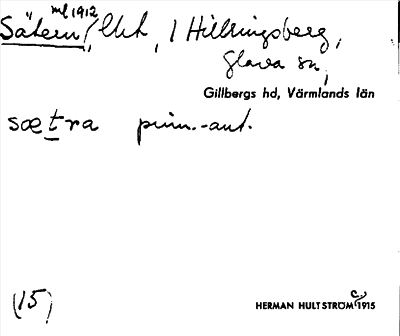 ml 1912
Sätern, lht, / Hillringsberg,
Glava sn,
Gillbergs hd, Värmlands län
sætra prim.-aut.
(15)
HERMAN HULTSTRÖM 1915